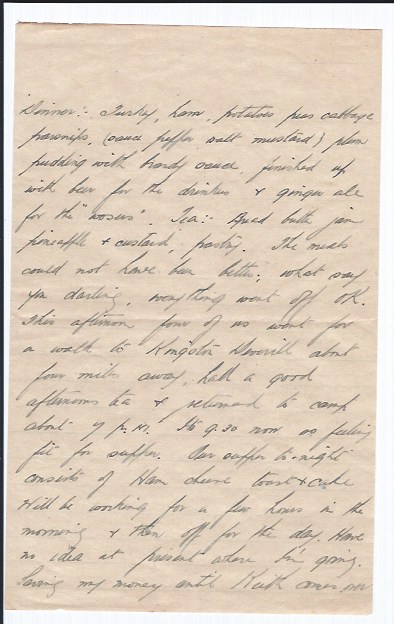 Dinner:- Turkey, ham, potatoes peas cabbage
parsnips, (sauce pepper salt mustard) plum
pudding with brandy sauce, finished up
with beer for the drinkers & ginger ale
for the "wosers". Tea:- Bread butter jam
pineapple & custard, pastry. The meals
could not have been better, what say
you darling, everything went off OK.
This afternoon four of us went for
a walk to Kingston Deverill about
four miles away, had a good
afternoons tea & returned to camp
about 7 p.m. Its 9.30 now & feeling
fit for supper. Our supper to-night
consists of Ham cheese toast & cake
Will be working for a few hours in the
morning & then off for the day. Have
no idea at present where I'm going.
Saving my money until Keith comes over